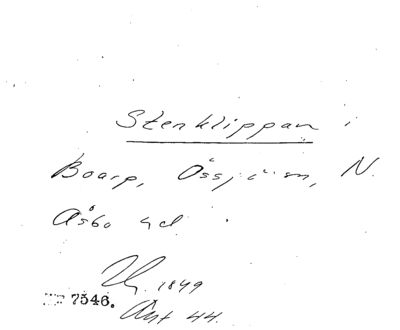 Stenklippan i
Boarp, Össjö sn, N.
Åsbo hd.
1849
Nr 7546.
Ant 44.